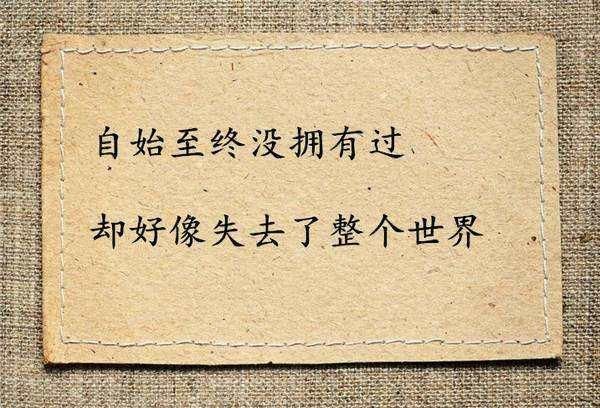 自始至终没拥有过
却好像失去了整个世界